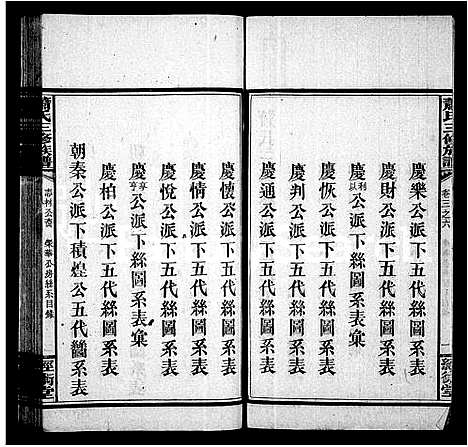 蕭氏三修族譜
卷三之六
經術堂
慶樂公派下五代絲圖系表
慶財公派下五代絲圖系表
慶利以公派下絲圖系表彙
慶恢公派下五代絲圖系表
慶判公派下五代絲圖系表
慶通公派下五代絲圖系表
慶懷公派下五代絲圖系表
慶情公派下五代絲圖系表
慶悅公派下五代絲圖系表
慶享亨公派下絲圖系表彙
慶柏公派下五代絲圖系表
朝秦公派下積煌公五代齒系表
蕭氏三修族譜
榮華公房絲系目錄
經術堂